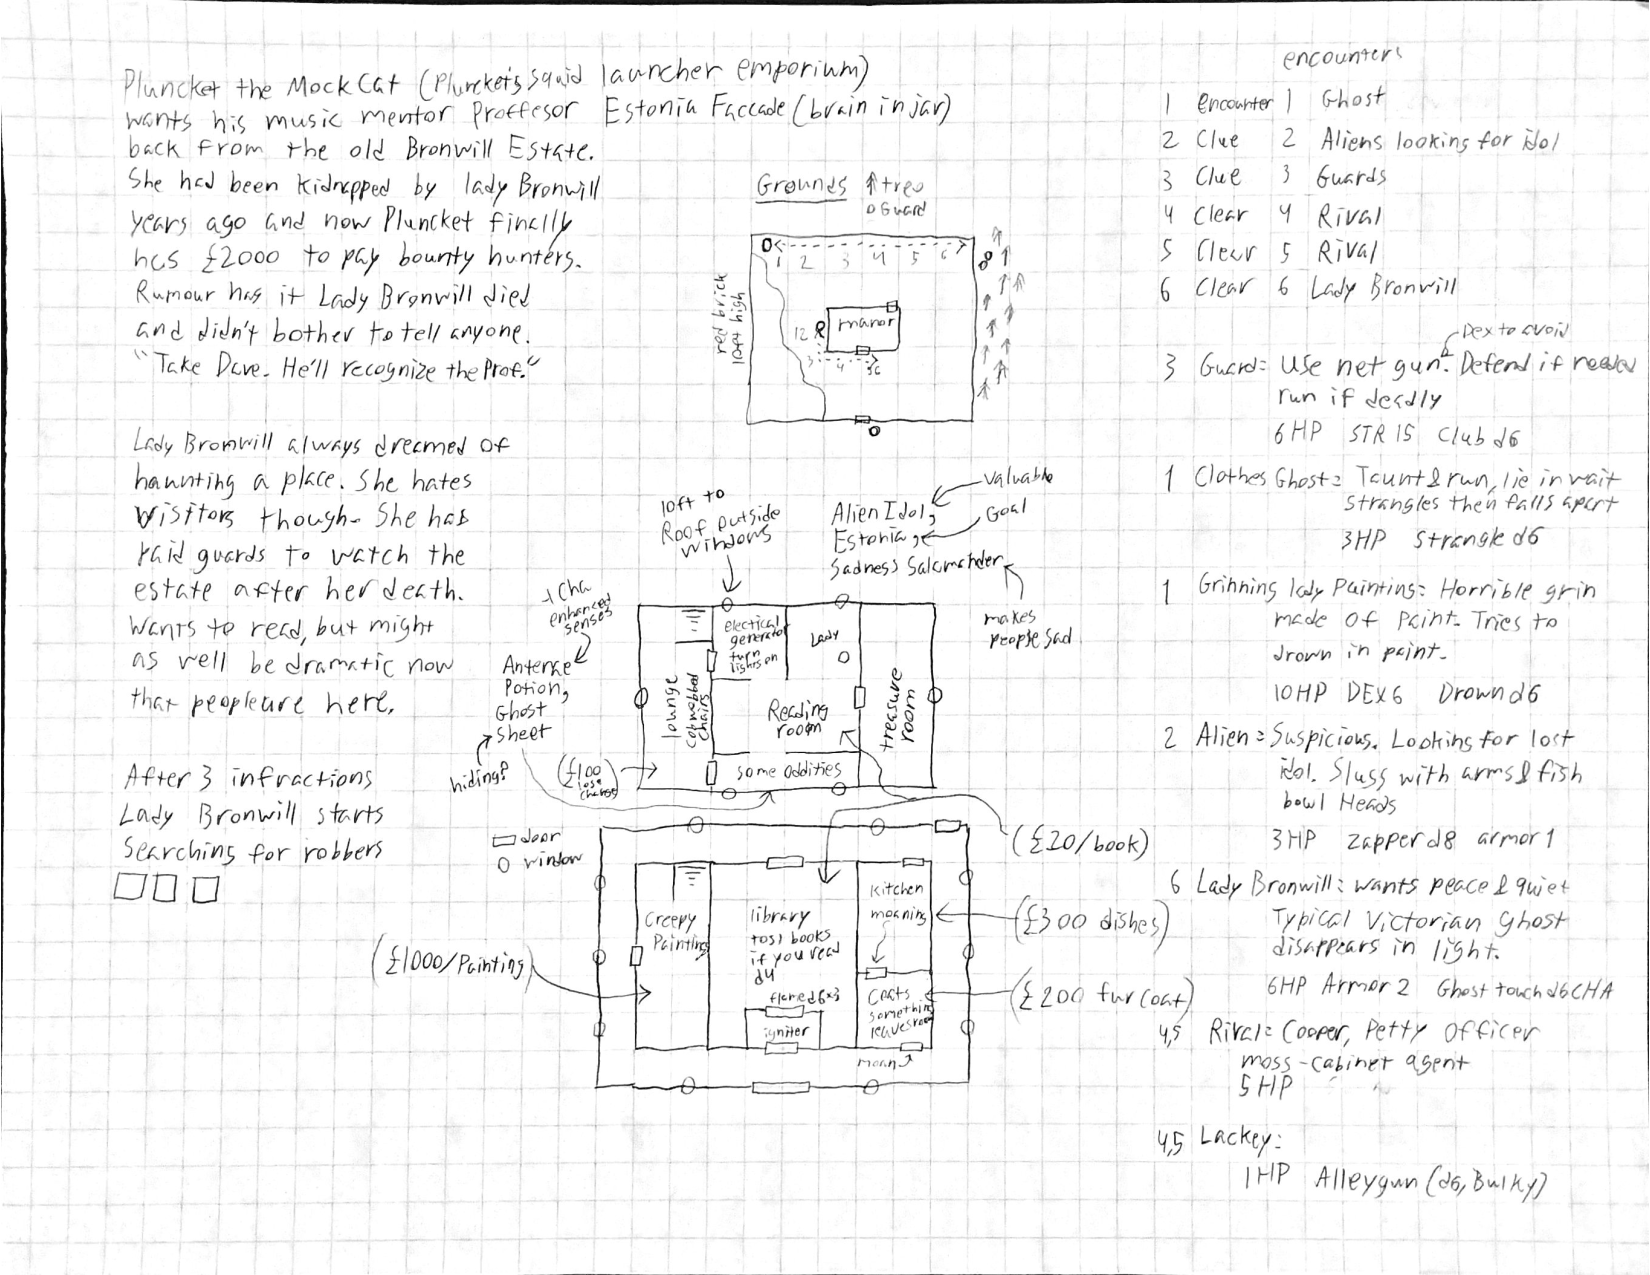 Pluncket the Mock Cat (Pluncket's squid launcher emporium)
wants his music mentor Proffesor Estonia Faccade (brain in jar)
back from the old Bronwill Estate.
She had been kidnapped by lady Bronwill
years ago and now Pluncket finally
has £2000 to pay bounty hunters.
Rumour has it Lady Bronwill died
and didn't bother to tell anyone.
"Take Dave. He'll recognize the Prof."
Lady Bronwill always dreamed of
haunting a place. She hates
visitors though. She has
paid guards to watch the
estate after her death.
Wants to read, but might
as well be dramatic now
that people are here.
After 3 infractions
Lady Bronwill starts
searching for robbers
Grounds
tree
Guard
1 2 3 4 5 6
red brick
10ft high
manor
12
3 4 56
10ft to
Roof outside
windows
Alien Idol,
Estonia,
Sadness Salamander
valuable
Goal
makes
people sad
+ Cha
enhanced
senses
Antenae
Potion,
Ghost
Sheet
hiding?
(£100
lose
change)
electical
generator
turn
lights on
Lady
lounge
cobwebbed
chairs
Reading
room
treasure
room
some oddities
door
window
(£20/book)
Creepy
Painting
library
toss books
if you read
d4
flame d6x3
igniter
Kitchen
moaning
Coats
something
leaves room
moan
(£1000/Painting)
(£300 dishes)
(£200 fur coat)
encounters
1 encounter 1 Ghost
2 Clue 2 Aliens looking for idol
3 Clue 3 Guards
4 Clear 4 Rival
5 Clear 5 Rival
6 Clear 6 Lady Bronwill
Dex to avoid
3 Guard: Use net gun. Defend if needed
run if deadly
6HP STR 15 Club d6
1 Clothes Ghost: Taunt & run, lie in wait
strangles then falls apart
3HP Strangle d6
1 Grinning lady Painting: Horrible grin
made of paint. Tries to
drown in paint.
10HP DEX 6 Drown d6
2 Alien: Suspicious. Looking for lost
idol. Slugs with arms & fish
bowl Heads
3HP Zapper d8 armor 1
6 Lady Bronwill: wants peace & quiet
Typical Victorian Ghost
disappears in light.
6HP Armor 2 Ghost touch d6 CHA
4,5 Rival: Cooper, Petty Officer
moss-cabinet agent
5HP
4,5 Lackey:
1HP Alleygun (d6, Bulky)